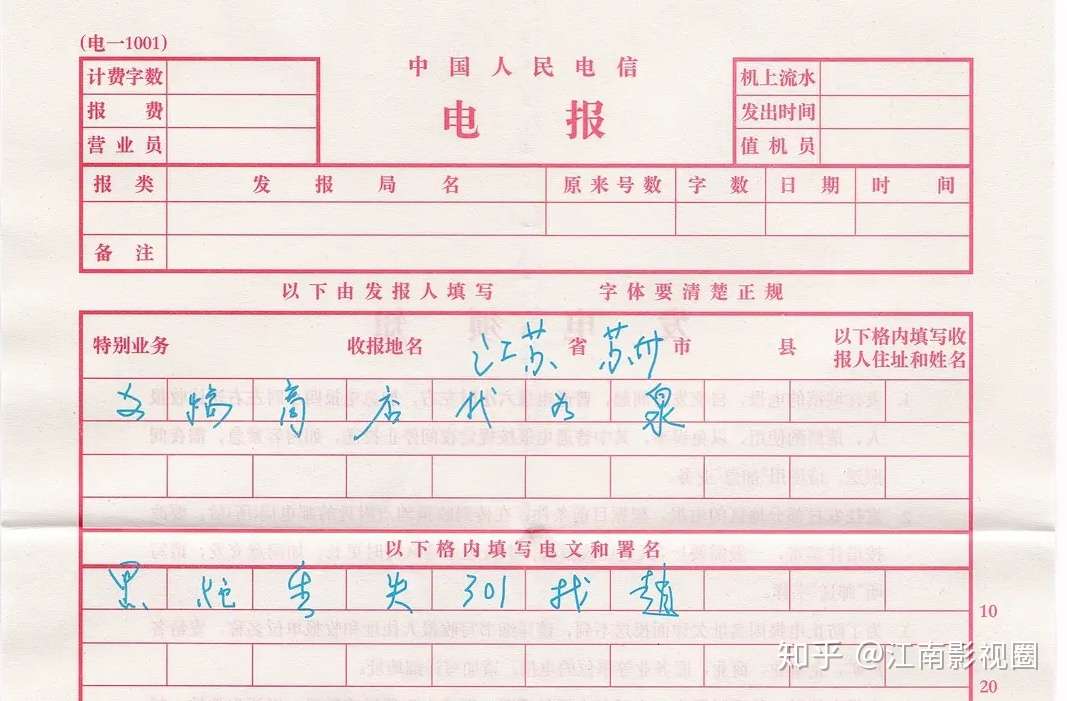 (电一1001)
中国人民电信
电报
计费字数
报费
营业员
机上流水
发出时间
值机员
报类 发报局名 原来号数 字数 日期 时间
备注
以下由发报人填写 字体要清楚正规
特别业务 收报地名 江苏省 苏州市 县 以下格内填写收报人住址和姓名
商店代 泉
以下格内填写电文和署名
黑 失301找赵
10
20
知乎 @江南影视圈